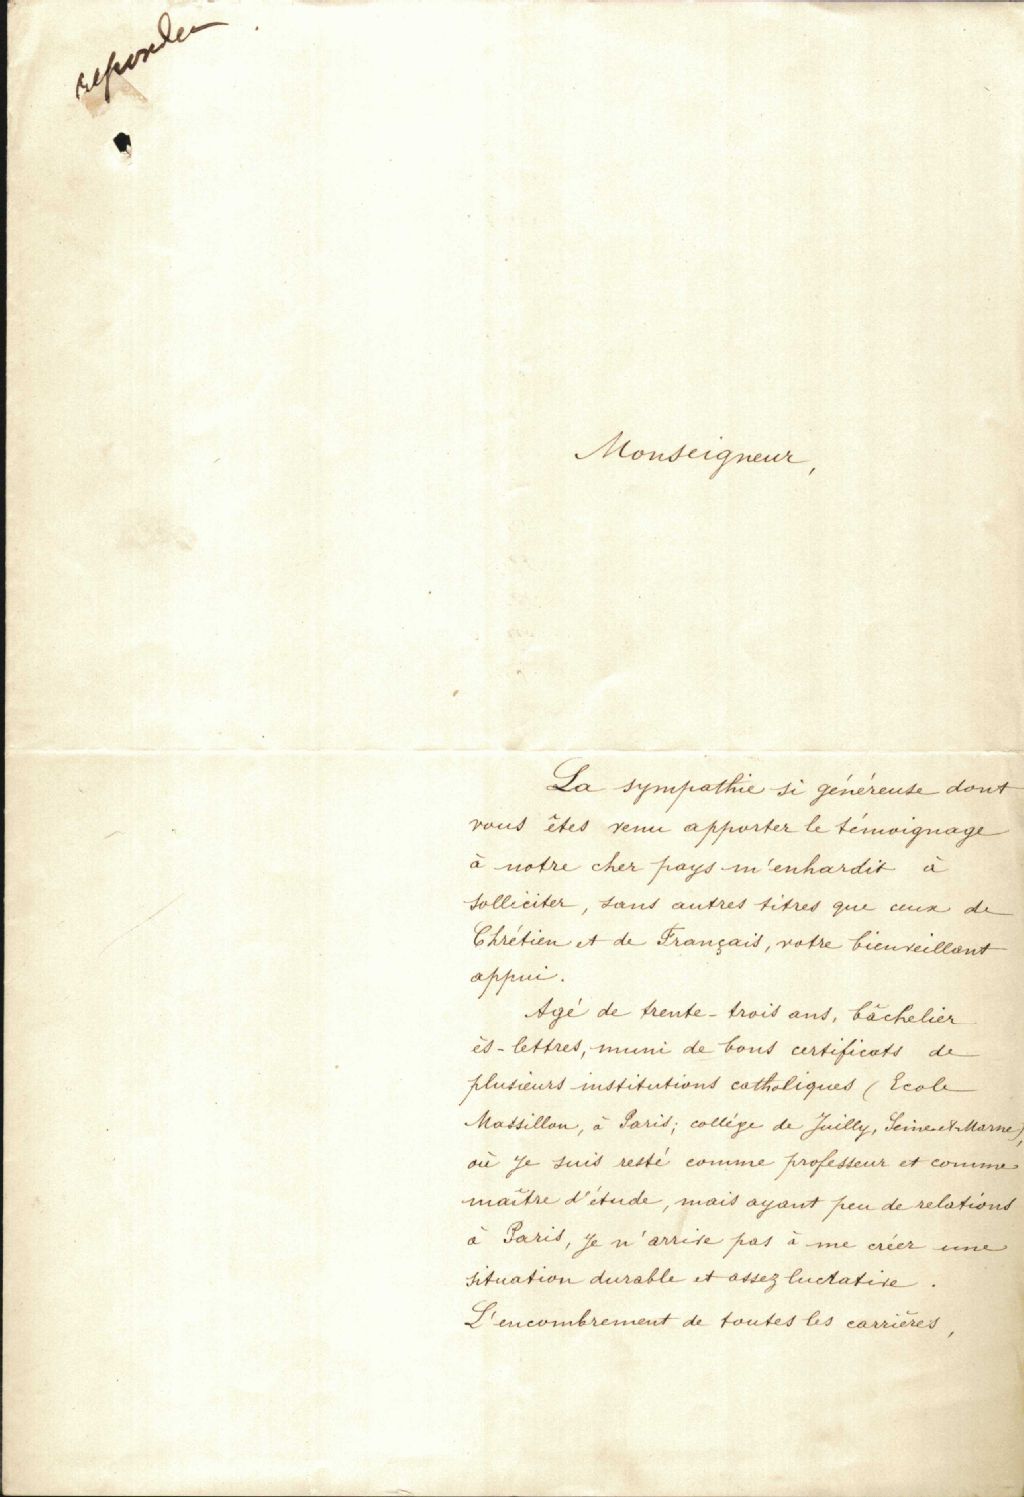 reponder
Monseigneur,
La sympathie si généreuse dont
vous êtes venu apporter le témoignage
à notre cher pays m'enhardit à
solliciter, sans autres titres que ceux de
Chrétien et de Français, votre bienveillant
appui.
Agé de trente-trois ans, bâchelier
ès-lettres, muni de bons certificats de
plusieurs institutions catholiques (Ecole
Massillon, à Paris; collège de Juilly, Seine-et-Marne),
où je suis resté comme professeur et comme
maître d'étude, mais ayant peu de relations
à Paris, je n'arrive pas à me créer une
situation durable et assez lucrative.
L'encombrement de toutes les carrières,